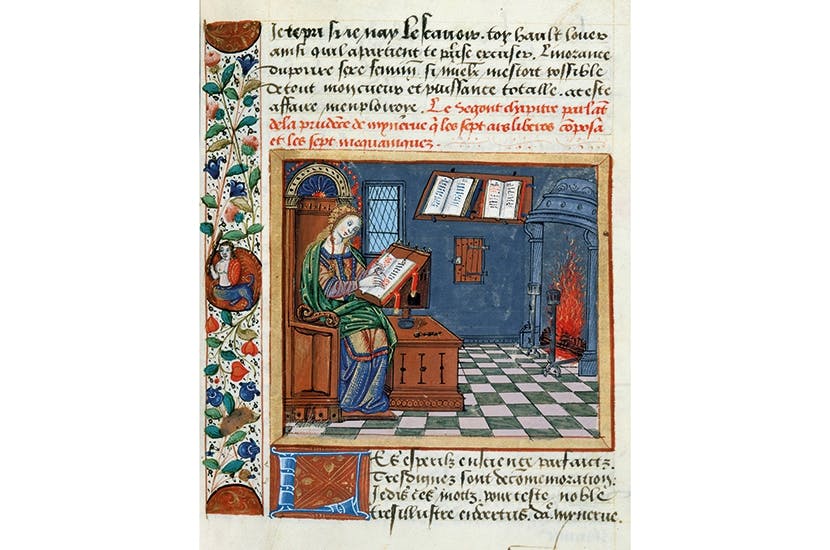 Je te pri si ie nay le scauoir. toy hault louer
ainsi quil apartient te plese excuser. Linorance
du poure sexe feminin. si mieulx mestoit possible
de tout mon cueur et puissance totalle. a ceste
affaire menploiroye. Le segont chapitre parlãt
de la prudẽce de mynerue q̃ les sept ars liberos cõposa
et les sept mequaniquez.
Les esperilz en science parfaictz.
Tresdignez sont de comemoration:
Je dis ces motz. pour ceste noble
tresillustre en vertus. da. mynerue.